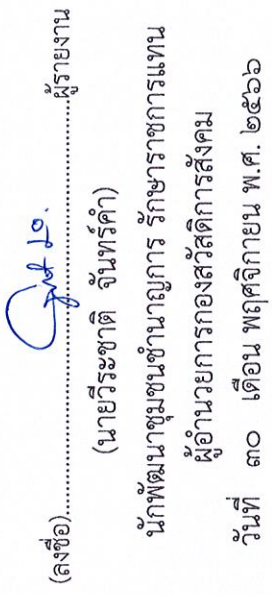 (ลงชื่อ)..............................ผู้รายงาน
(นายวีระชาติ จันทร์คำ)
นักพัฒนาชุมชนชำนาญการ รักษาราชการแทน
ผู้อำนวยการกองสวัสดิการสังคม
วันที่ ๓๐ เดือน พฤศจิกายน พ.ศ. ๒๕๖๖